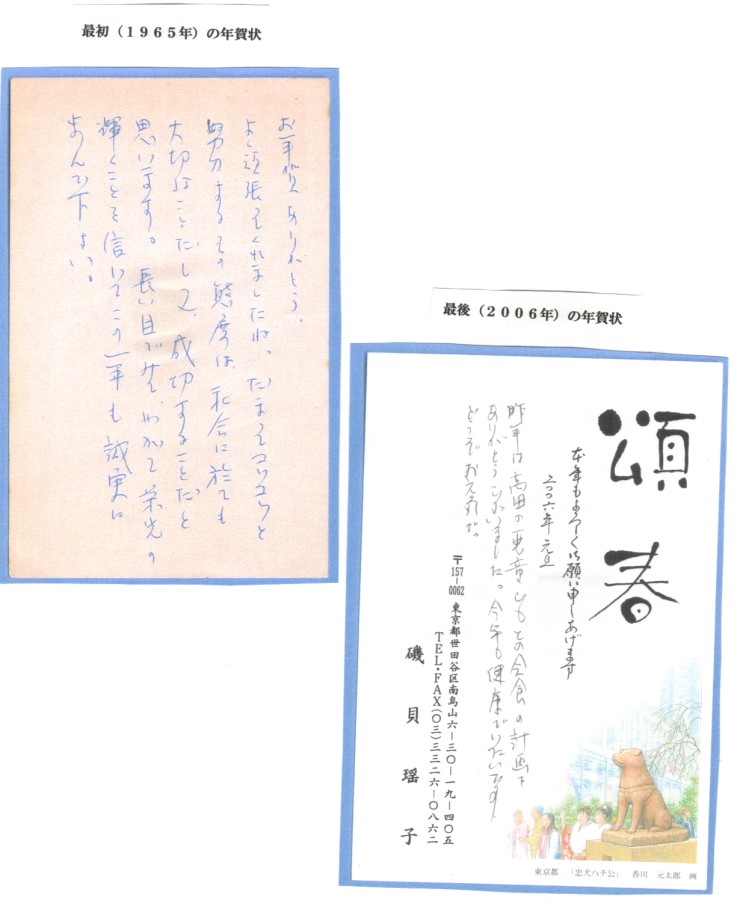 最初（１９６５年）の年賀状
お年賀ありがとう．
よく頑張ってくれましたね、だまってコツコツと
努力するその態度は、社会に於ても
大切なことだし又、成功することだと
思います。長い目でみて、やがて栄光の
輝くことを信じてこの一年も誠実に
あゆんで下さい。
最後（２００６年）の年賀状
頌春
本年もよろしくお願い申しあげます
二〇〇六年 元旦
昨年は高田の
との会食の計画を
ありがとうございました。今年も健康でいたいです
どうぞお元気で。
〒157-0062 東京都世田谷区南烏山六ー三〇ー一九ー四〇五
ＴＥＬ・ＦＡＸ（〇三）三三二六ー〇八六二
磯貝瑶子
東京都 「忠犬ハチ公」 香川 元太郎 画